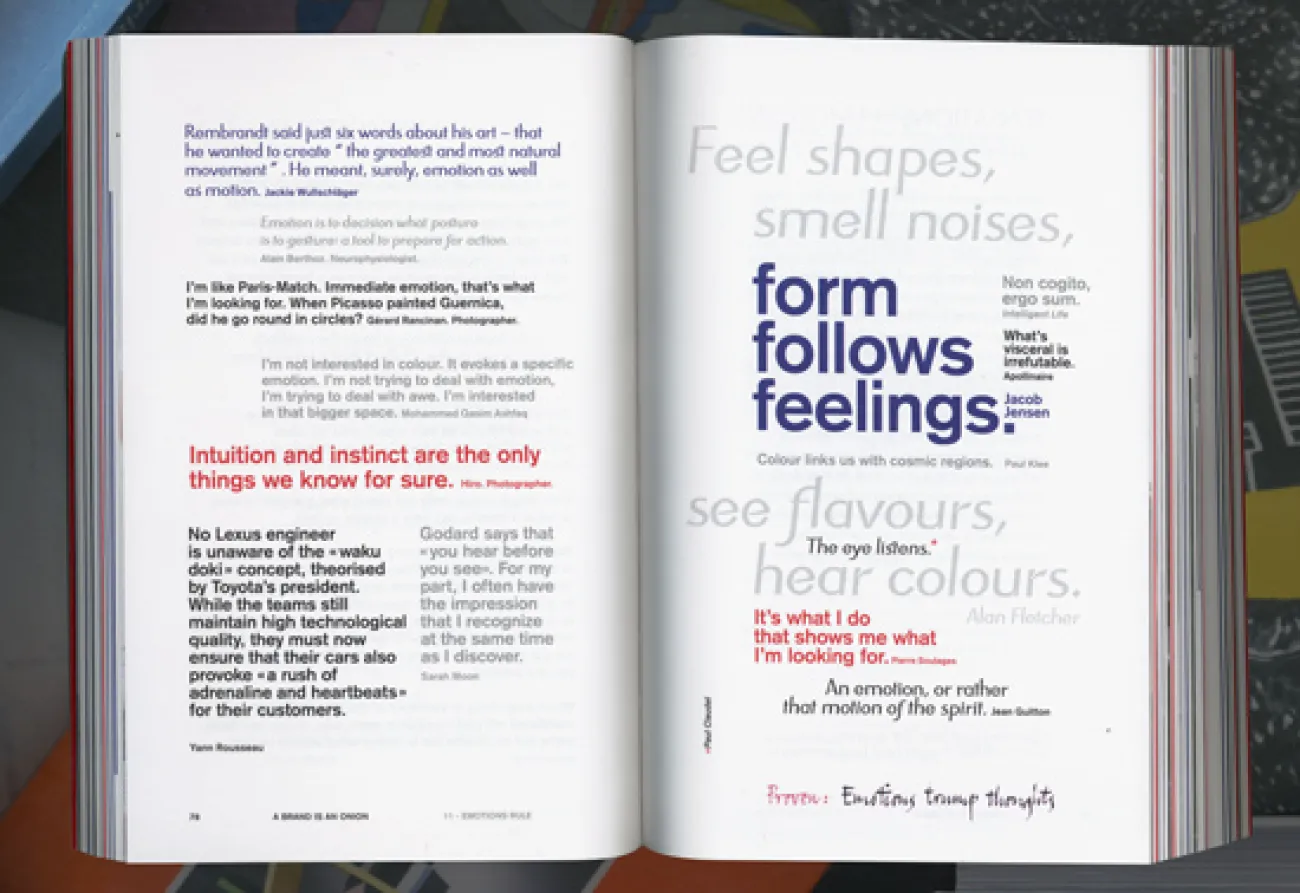 Rembrandt said just six words about his art – that
he wanted to create “ the greatest and most natural
movement ” . He meant, surely, emotion as well
as motion. Jackie Wullschläger
Emotion is to decision what posture
is to gesture: a tool to prepare for action.
Alain Berthoz. Neurophysiologist.
I’m like Paris-Match. Immediate emotion, that’s what
I’m looking for. When Picasso painted Guernica,
did he go round in circles? Gérard Rancinan. Photographer.
I’m not interested in colour. It evokes a specific
emotion. I’m not trying to deal with emotion,
I’m trying to deal with awe. I’m interested
in that bigger space. Mohammed Qasim Ashfaq
Intuition and instinct are the only
things we know for sure. Hiro. Photographer.
No Lexus engineer
is unaware of the «waku
doki» concept, theorised
by Toyota’s president.
While the teams still
maintain high technological
quality, they must now
ensure that their cars also
provoke «a rush of
adrenaline and heartbeats»
for their customers.
Yann Rousseau
Godard says that
«you hear before
you see». For my
part, I often have
the impression
that I recognize
at the same time
as I discover.
Sarah Moon
78 A BRAND IS AN ONION 11 - EMOTIONS RULE
Feel shapes,
smell noises,
form
follows
feelings.
Non cogito,
ergo sum.
Intelligent Life
What’s
visceral is
irrefutable.
Apollinaire
Jacob
Jensen
Colour links us with cosmic regions. Paul Klee
see flavours,
The eye listens.*
hear colours.
Alan Fletcher
It’s what I do
that shows me what
I’m looking for. Pierre Soulages
An emotion, or rather
that motion of the spirit. Jean Guitton
*Paul Claudel
Proven: Emotions trump thoughts